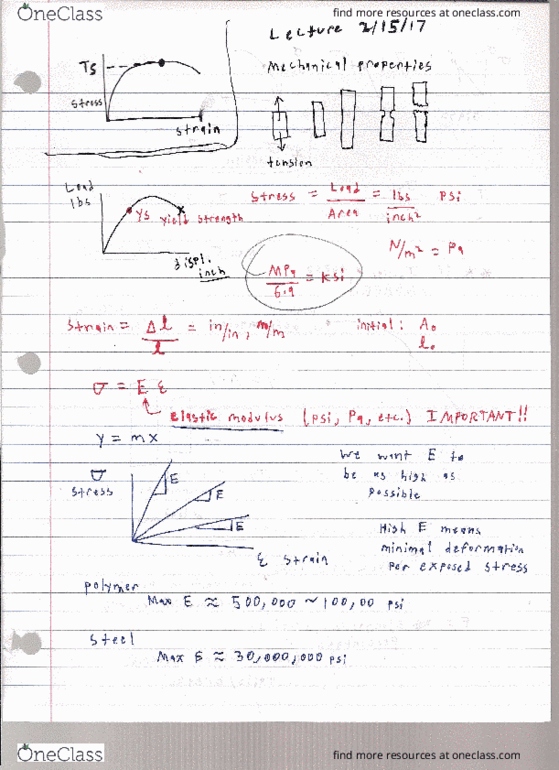 OneClass
find more resources at oneclass.com
Lecture 2/15/17
Mechanical properties
TS
stress
strain
tension
Load
lbs
YS yield strength
displ.
inch
Stress = Load/Area = lbs/inch² psi
N/m² = Pa
MPa/6.9 = ksi
Strain = Δl/l = in/in, m/m
initial: A₀
l₀
σ = E ε
elastic modulus (psi, Pa, etc.) IMPORTANT!!
y = mx
σ
stress
E
E
E
ε strain
We want E to
be as high as
possible
High E means
minimal deformation
per exposed stress
polymer
Max E ≈ 500,000 ~ 100,00 psi
Steel
Max E ≈ 30,000,000 psi
OneClass
find more resources at oneclass.com